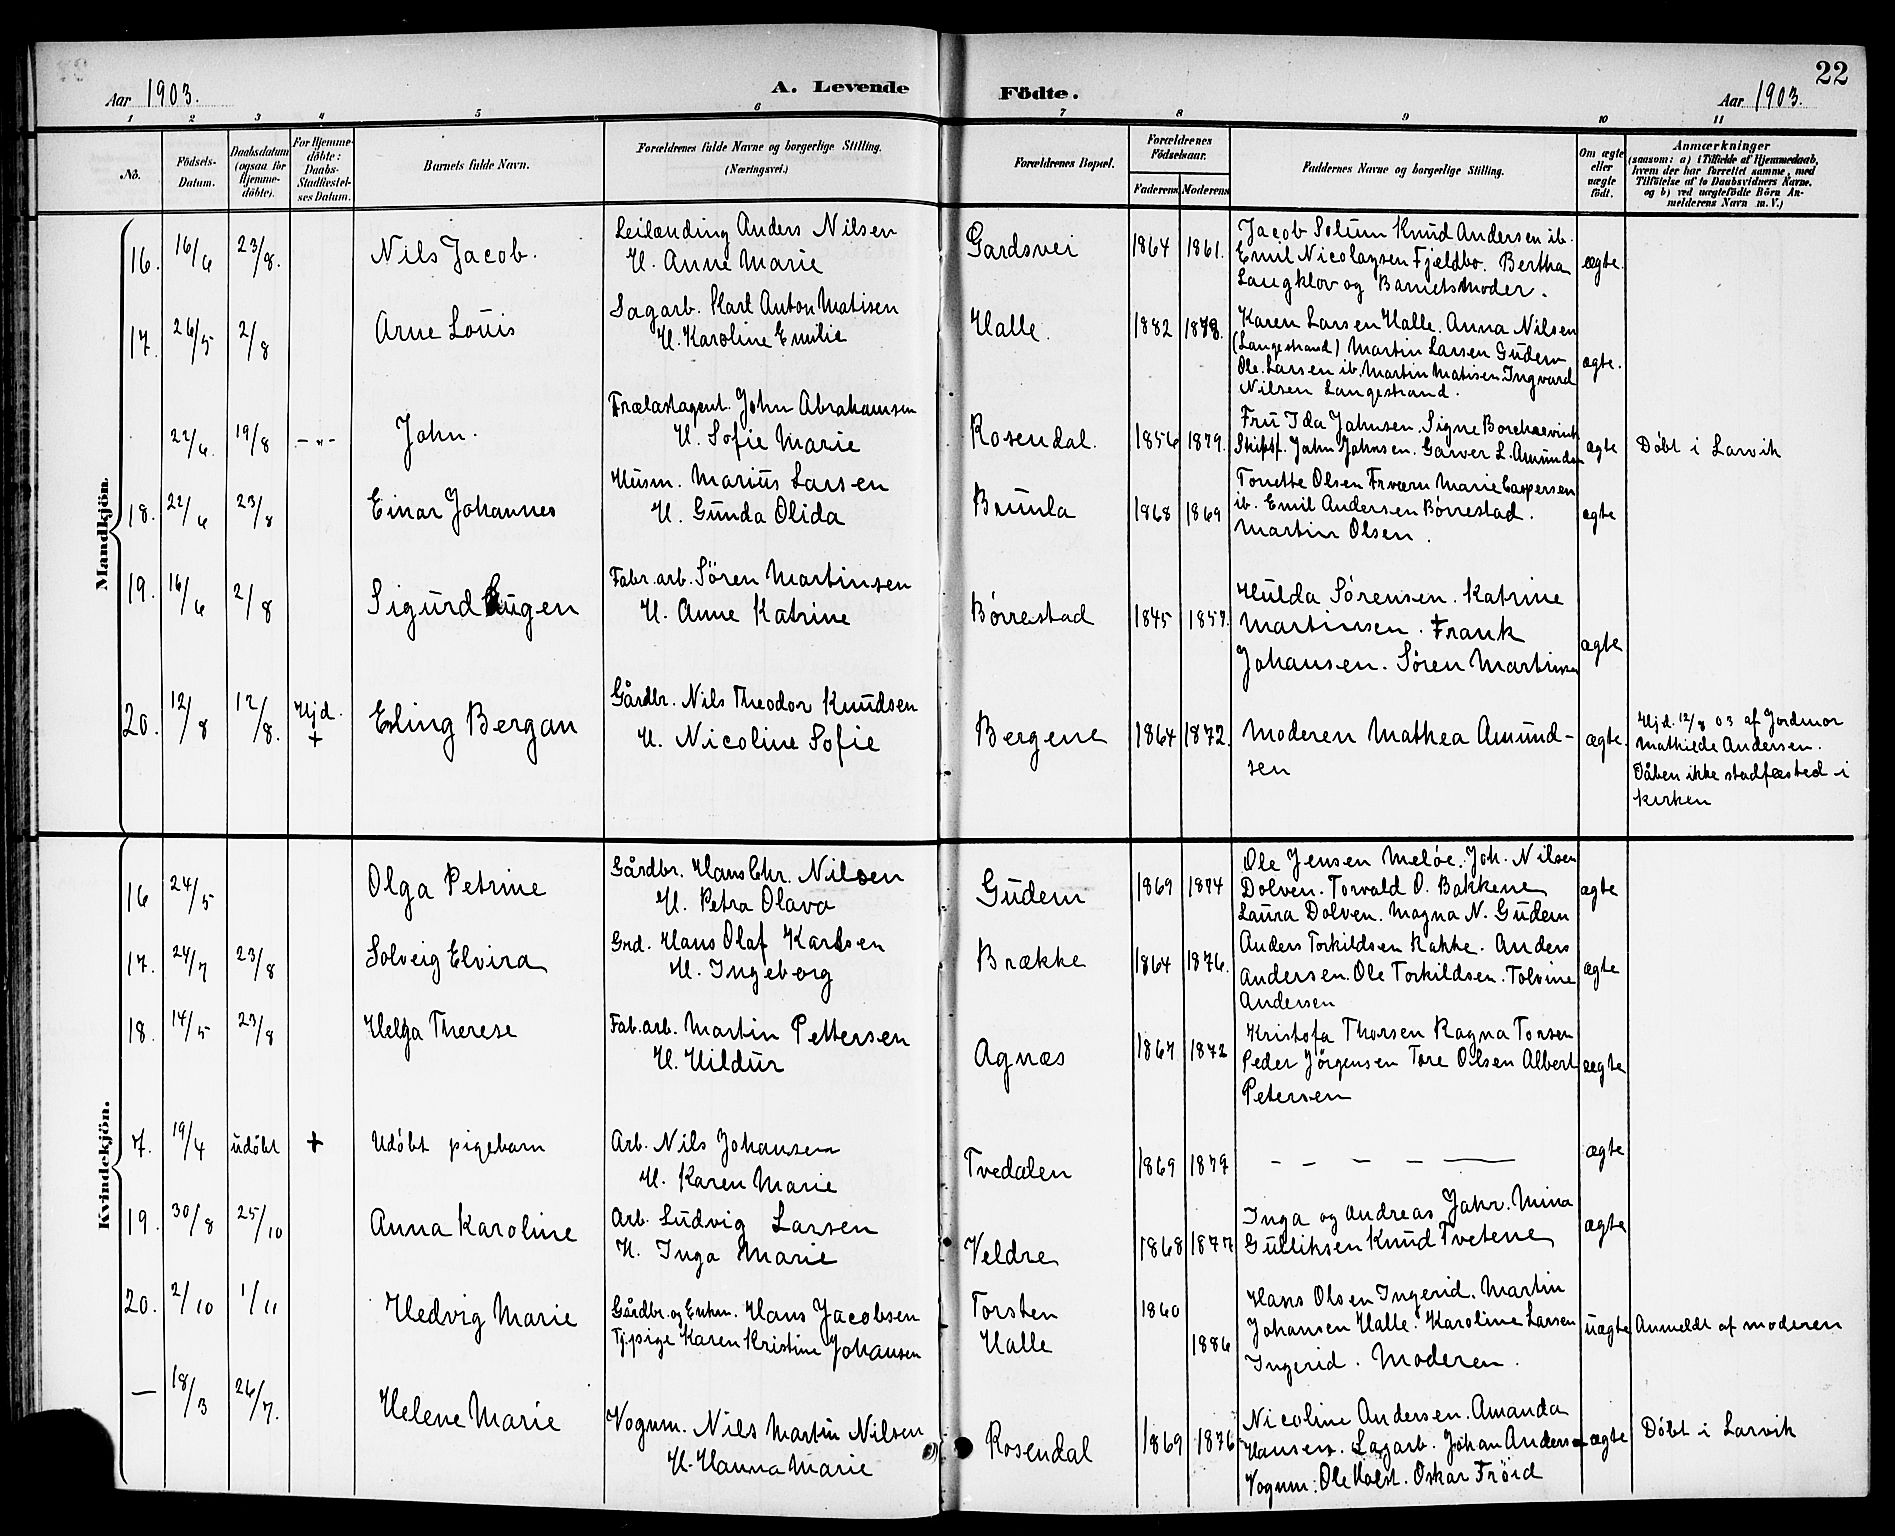 22
Aar 1903.
A. Levende Födte.
Aar 1903.
1 2 3 4 5 6 7 8 9 10 11
No.
Födsels-Datum.
Daabsdatum (ogsaa for Hjemme-döbte).
For Hjemme-döbte: Daabs-Stadfæstel-ses Datum.
Barnets fulde Navn.
Forældrenes fulde Navne og borgerlige Stilling. (Næringsvei.)
Forældrenes Bopæl.
Forældrenes Födselsaar.
Faderens. Moderens.
Faddernes Navne og borgerlige Stilling.
Om ægte eller uægte födt.
Anmærkninger
(saasom: a) i Tilfælde af Hjemmedaab,
hvem der har forrettet samme, med
Tilföielse af to Daabsvidners Navne.
og b) ved uægtefödte Börn An-
melderens Navn m. V.)
Mandkjön.
16. 16/6 23/8. Nils Jacob. Leilænding Anders Nilsen
H. Anne Marie
Gardsvei 1864 1861. Jacob Solum Knud Andersen ib.
Emil Nicolaysen Fjeldbo. Bertha
Langklov og Barnets Moder.
ægte.
17. 26/5 2/8 Arne Louis Sagarb. Karl Anton Matisen
H. Karoline Emilie
Halle. 1882 1878. Karen Larsen Halle. Anna Nilsen
(Langestrand) Martin Larsen Gudem
Ole Larsen ib. Martin Matisen Ingvard
Nilsen Langestrand.
ægte.
22/6. 19/8 -"- John. Trælastagent. John Abrahamsen
H. Sofie Marie
Rosendal. 1856 1879. Fru Ida Johnsen. Signe
Skipsf. John Johnsen. Garver L. Amundsen
ægte Døbt i Larvik
18. 22/6 23/8 Einar Johannes Husm. Marius Larsen
H. Gunda Olida
Brunla 1868 1869 Tonette Olsen Marie Caspersen
ib. Emil Andersen Børrestad.
Martin Olsen.
ægte
19. 16/6 2/8 Sigurd Eugen Fabr. arb. Sören Martinsen
H. Anne Katrine
Børrestad 1845 1857. Hulda Sørensen. Katrine
Martinsen. Frank
Johansen. Søren Martinsen
ægte
20. 12/8 12/8. Hjd. + Erling Bergan Gårdbr. Nils Theodor Knudsen
H. Nicoline Sofie
Bergene 1864 1872. Moderen Mathea Amund-
sen
ægte.
Hjd. 12/8 03 af Jordmor
Mathilde Andersen.
Dåben ikke stadfæsted i
kirken
Kvindekjön.
16 24/5 Olga Petrine Gårdbr. Hans Chr. Nilsen
H. Petra Olava
Gudem 1869 1874 Ole Jensen Meløe. Joh. Nilsen
Dolven. Torvald O. Bakkene
Laura Dolven. Magna N. Gudem
ægte
17. 24/7 23/8 Solveig Elvira Grd. Hans Olaf Karlsen
H. Ingeborg
Brække 1864 1876. Anders Torkildsen Rakke. Anders
Andersen. Ole Torkildsen. Tolvine
Andersen
ægte
18. 14/5 23/8 Helga Therese Fab. arb. Martin Pettersen
H. Hildur
Agnæs 1867 1872 Kristofa Thorsen Ragna Torsen
Peder Jørgensen Tore Olsen Albert
Petersen
ægte
7. 19/4 udøbt + Udøbt pigebarn Arb. Nils Johansen
H. Karen Marie
Tvedalen 1869 1879 — — — — —
ægte
19. 30/8 25/10 Anna Karoline Arb. Ludvig Larsen
H. Inga Marie
Veldre 1868 1877 Inga og Andreas Jahr. Mina
Gulliksen Knud Tvetene
ægte
20. 2/10 1/11 Hedvig Marie Gårdbr. og Enkm. Hans Jacobsen
Tj.pige Karen Kristine Johansen
Torsten
Halle
1860
1886
Hans Olsen Ingerid. Martin
Johansen Halle. Karoline Larsen
Ingerid. Moderen.
uægte Anmeldt af moderen
— 18/3 26/7. Helene Marie Vognm. Nils Martin Nilsen
H. Hanna Marie
Rosendal 1869 1876 Nicoline Andersen. Amanda
Hansen. Sagarb. Johan Andersen
Vognm. Ole Holst. Oskar Frøid
ægte Døbt i Larvik